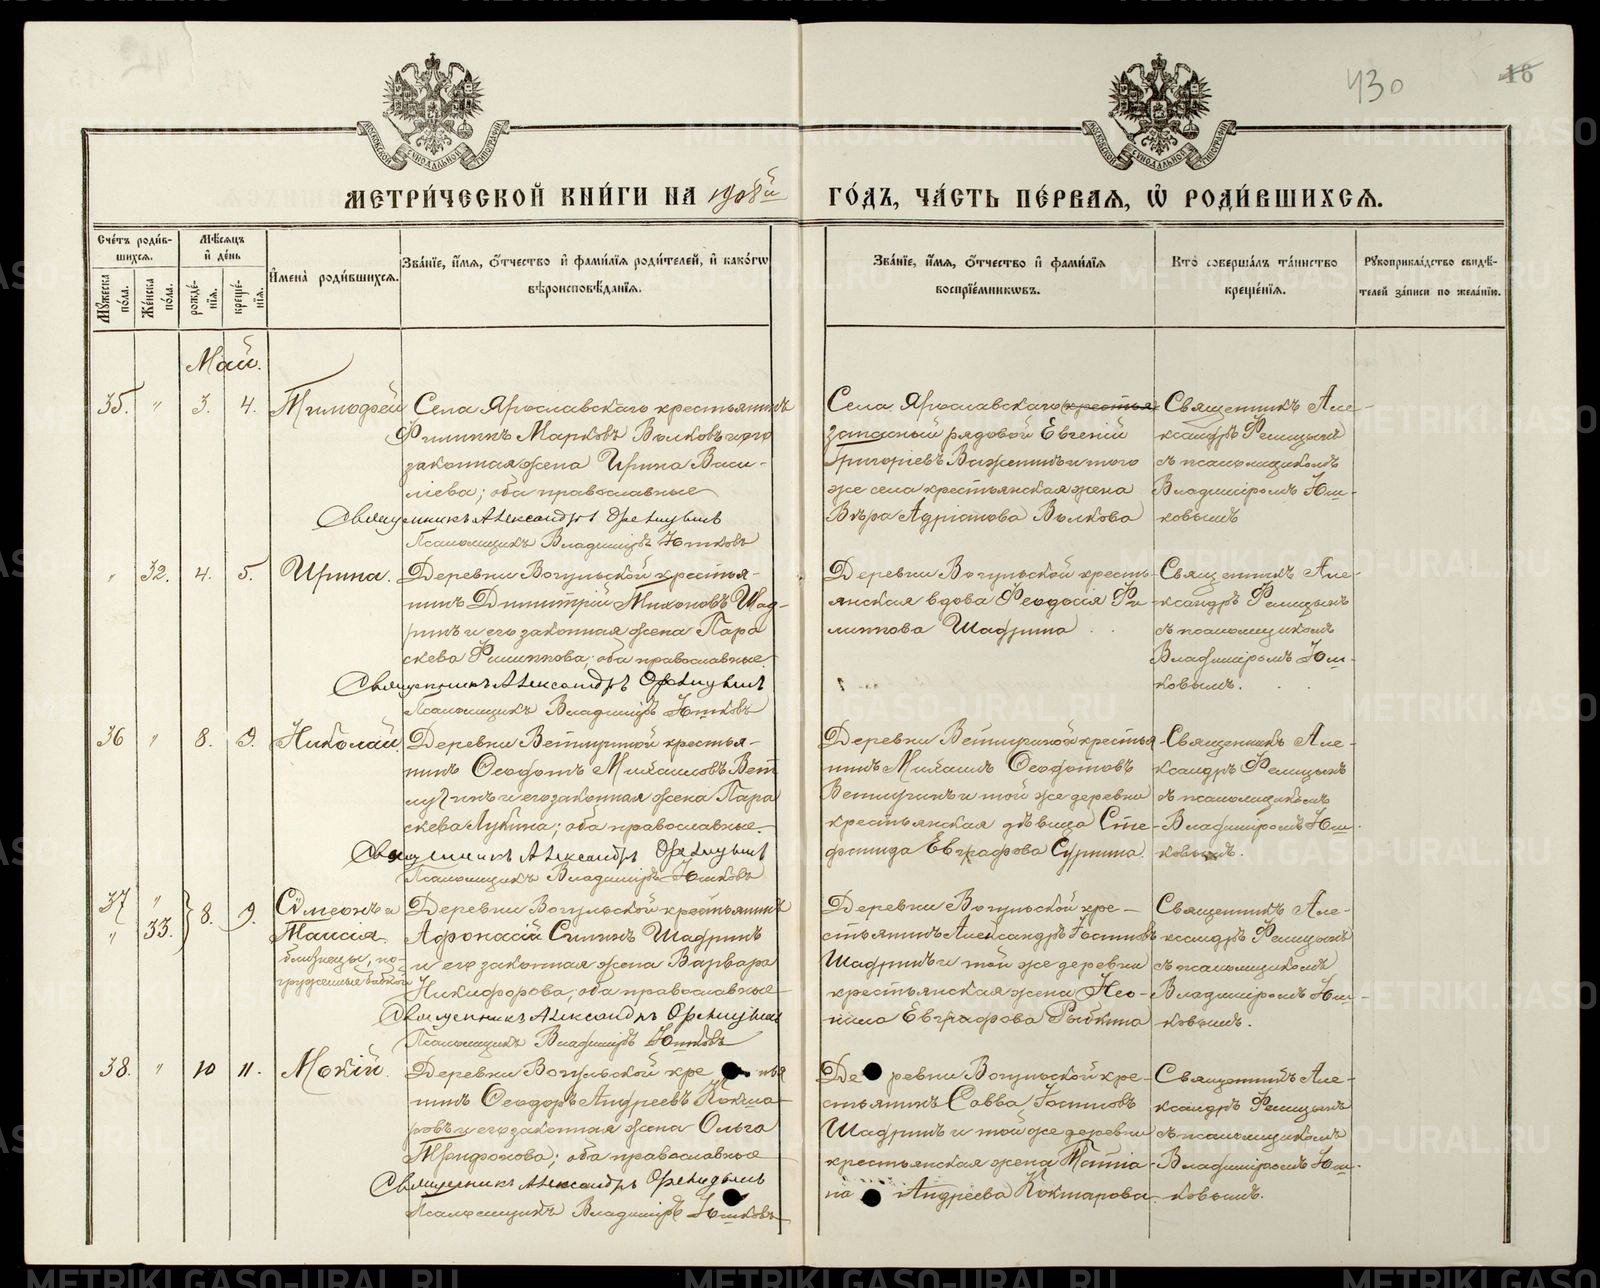 430
16
МОСКОВСКОЙ СѴНОДАЛЬНОЙ ТИПОГРАФІИ
МОСКОВСКОЙ СѴНОДАЛЬНОЙ ТИПОГРАФІИ
МЕТРИ́ЧЕСКОЙ КНИ́ГИ НА 1908й ГО́ДЪ, ЧА́СТЬ ПЕ́РВАѦ, Ѡ҆ РОДИ́ВШИХСѦ.
Сче́тъ роди́вшихсѧ.
Мꙋ́жеска по́ла.
Же́нска по́ла.
Мѣ́сѧцъ и҆ де́нь
рожде́нїѧ.
креще́нїѧ.
И҆мена̀ роди́вшихсѧ.
Зва́нїе, и҆́мѧ, ѻ҆́тчество и҆ фами́лїѧ роди́телей, и҆ како́гѡ
вѣроисповѣ́данїѧ.
Зва́нїе, и҆́мѧ, ѻ҆́тчество и҆ фами́лїѧ
воспрїе́мникѡвъ.
Кто̀ соверша́лъ та́инство
креще́нїѧ.
Рꙋкоприкла́дство свидѣ́телей за́писи по жела́нїю.
Май.
35. " 3. 4. Тимофей
Села Ярославскаго крестьянинъ
Филиппъ Марковъ Волковъ и его
законная жена Ирина Васи-
лiева; оба православные
Священникъ Александръ Феницынъ
Псаломщикъ Владимiръ Юшковъ
Села Ярославскаго крестья
запасный рядовой Евгенiй
Григорiевъ Важенинъ и того
же села крестьянская жена
Вѣра Адрiанова Волкова
Священникъ Але-
ксандръ Феницынъ
съ псаломщикомъ
Владимiромъ Юш-
ковымъ
" 32. 4. 5. Ирина.
Деревни Вогульской крестья-
нинъ Димитрiй Шад-
ринъ и его законная жена Пара
скева Филиппова; оба православные
Священникъ Александръ Феницынъ
Псаломщикъ Владимiръ Юшковъ
Деревни Вогульской кресть-
янская вдова Феодосiя Фи
липпова Шадрина
Священникъ Але-
ксандръ Феницынъ
съ псаломщикомъ
Владимiромъ Юш-
ковымъ.
36 " 8. 9. Николай
Деревни крестья-
нинъ Ѳеодотъ Михаиловъ
и его законная жена Пара
скева Лукина; оба православные.
Священникъ Александръ Феницынъ
Псаломщикъ Владимiръ Юшковъ
Деревни крестья
нинъ Михаилъ Ѳеодотовъ
и той же деревни
крестьянская дѣвица Сте-
фанида Евграфова Сурнина.
Священникъ Але-
ксандръ Феницынъ
съ псаломщикомъ
Владимiромъ Юш-
ковымъ.
37 " 8. 9. Сѵмеонъ и
" 33. Таисiя.
близнецы, по-
груженные бабкой
Деревни Вогульской крестьянинъ
Афонасiй Силинъ Шадринъ
и его законная жена Варвара
Никифорова; оба православные
Священникъ Александръ Феницынъ
Псаломщикъ Владимiръ Юшковъ
Деревни Вогульской кре-
стьянинъ Александръ
Шадринъ и той же деревни
крестьянская жена Нео-
нила Евграфова Рыбкина
Священникъ Але-
ксандръ Феницынъ
съ псаломщикомъ
Владимiромъ Юш-
ковымъ.
38. " 10 11. Мокiй.
Деревни Вогульской кре
нинъ Ѳеодоръ Андреевъ Кокша
ровъ и его законная жена Ольга
Трифонова; оба православные
Священникъ Александръ Феницынъ
Псаломщикъ Владимiръ Юшковъ
Деревни Вогульской кре-
стьянинъ Савва
Шадринъ и той же деревни
крестьянская жена Татiа-
на Андреева Кокшарова.
Священникъ Але-
ксандръ Феницынъ
съ псаломщикомъ
Владимiромъ Юш-
ковымъ.
METRIKI.GASO-URAL.RU